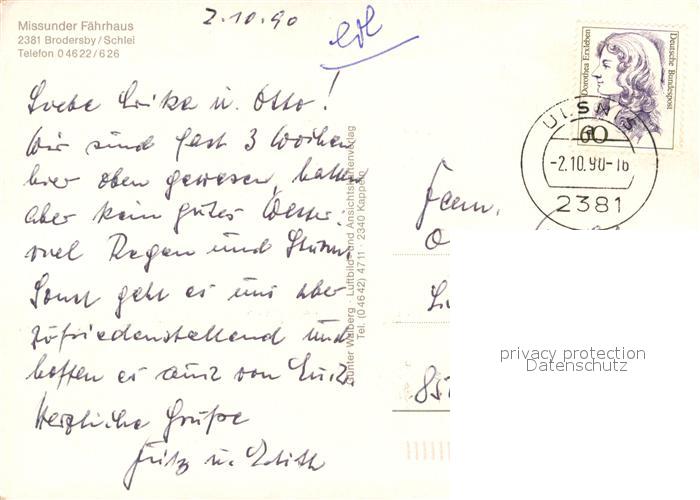 Missunder Fährhaus
2381 Brodersby/Schlei
Telefon 04622/626
2.10.90
Liebe Erika u. Otto!
Wir sind fast 3 Wochen
hier oben gewesen, hatten
aber kein gutes Wetter.
viel Regen und Sturm
Sonst geht es uns aber
zufriedenstellend und
hoffen es auch von Euch.
Herzliche Grüße
Fritz u. Edith
Günter Walberg · Luftbild- und Ansichtskartenverlag
Tel. (04642) 4711 · 2340 Kappeln
Dorothea Erxleben
Deutsche Bundespost
60
ULSNIS
-2.10.90-16
2381
Fam.
O
85
privacy protection
Datenschutz